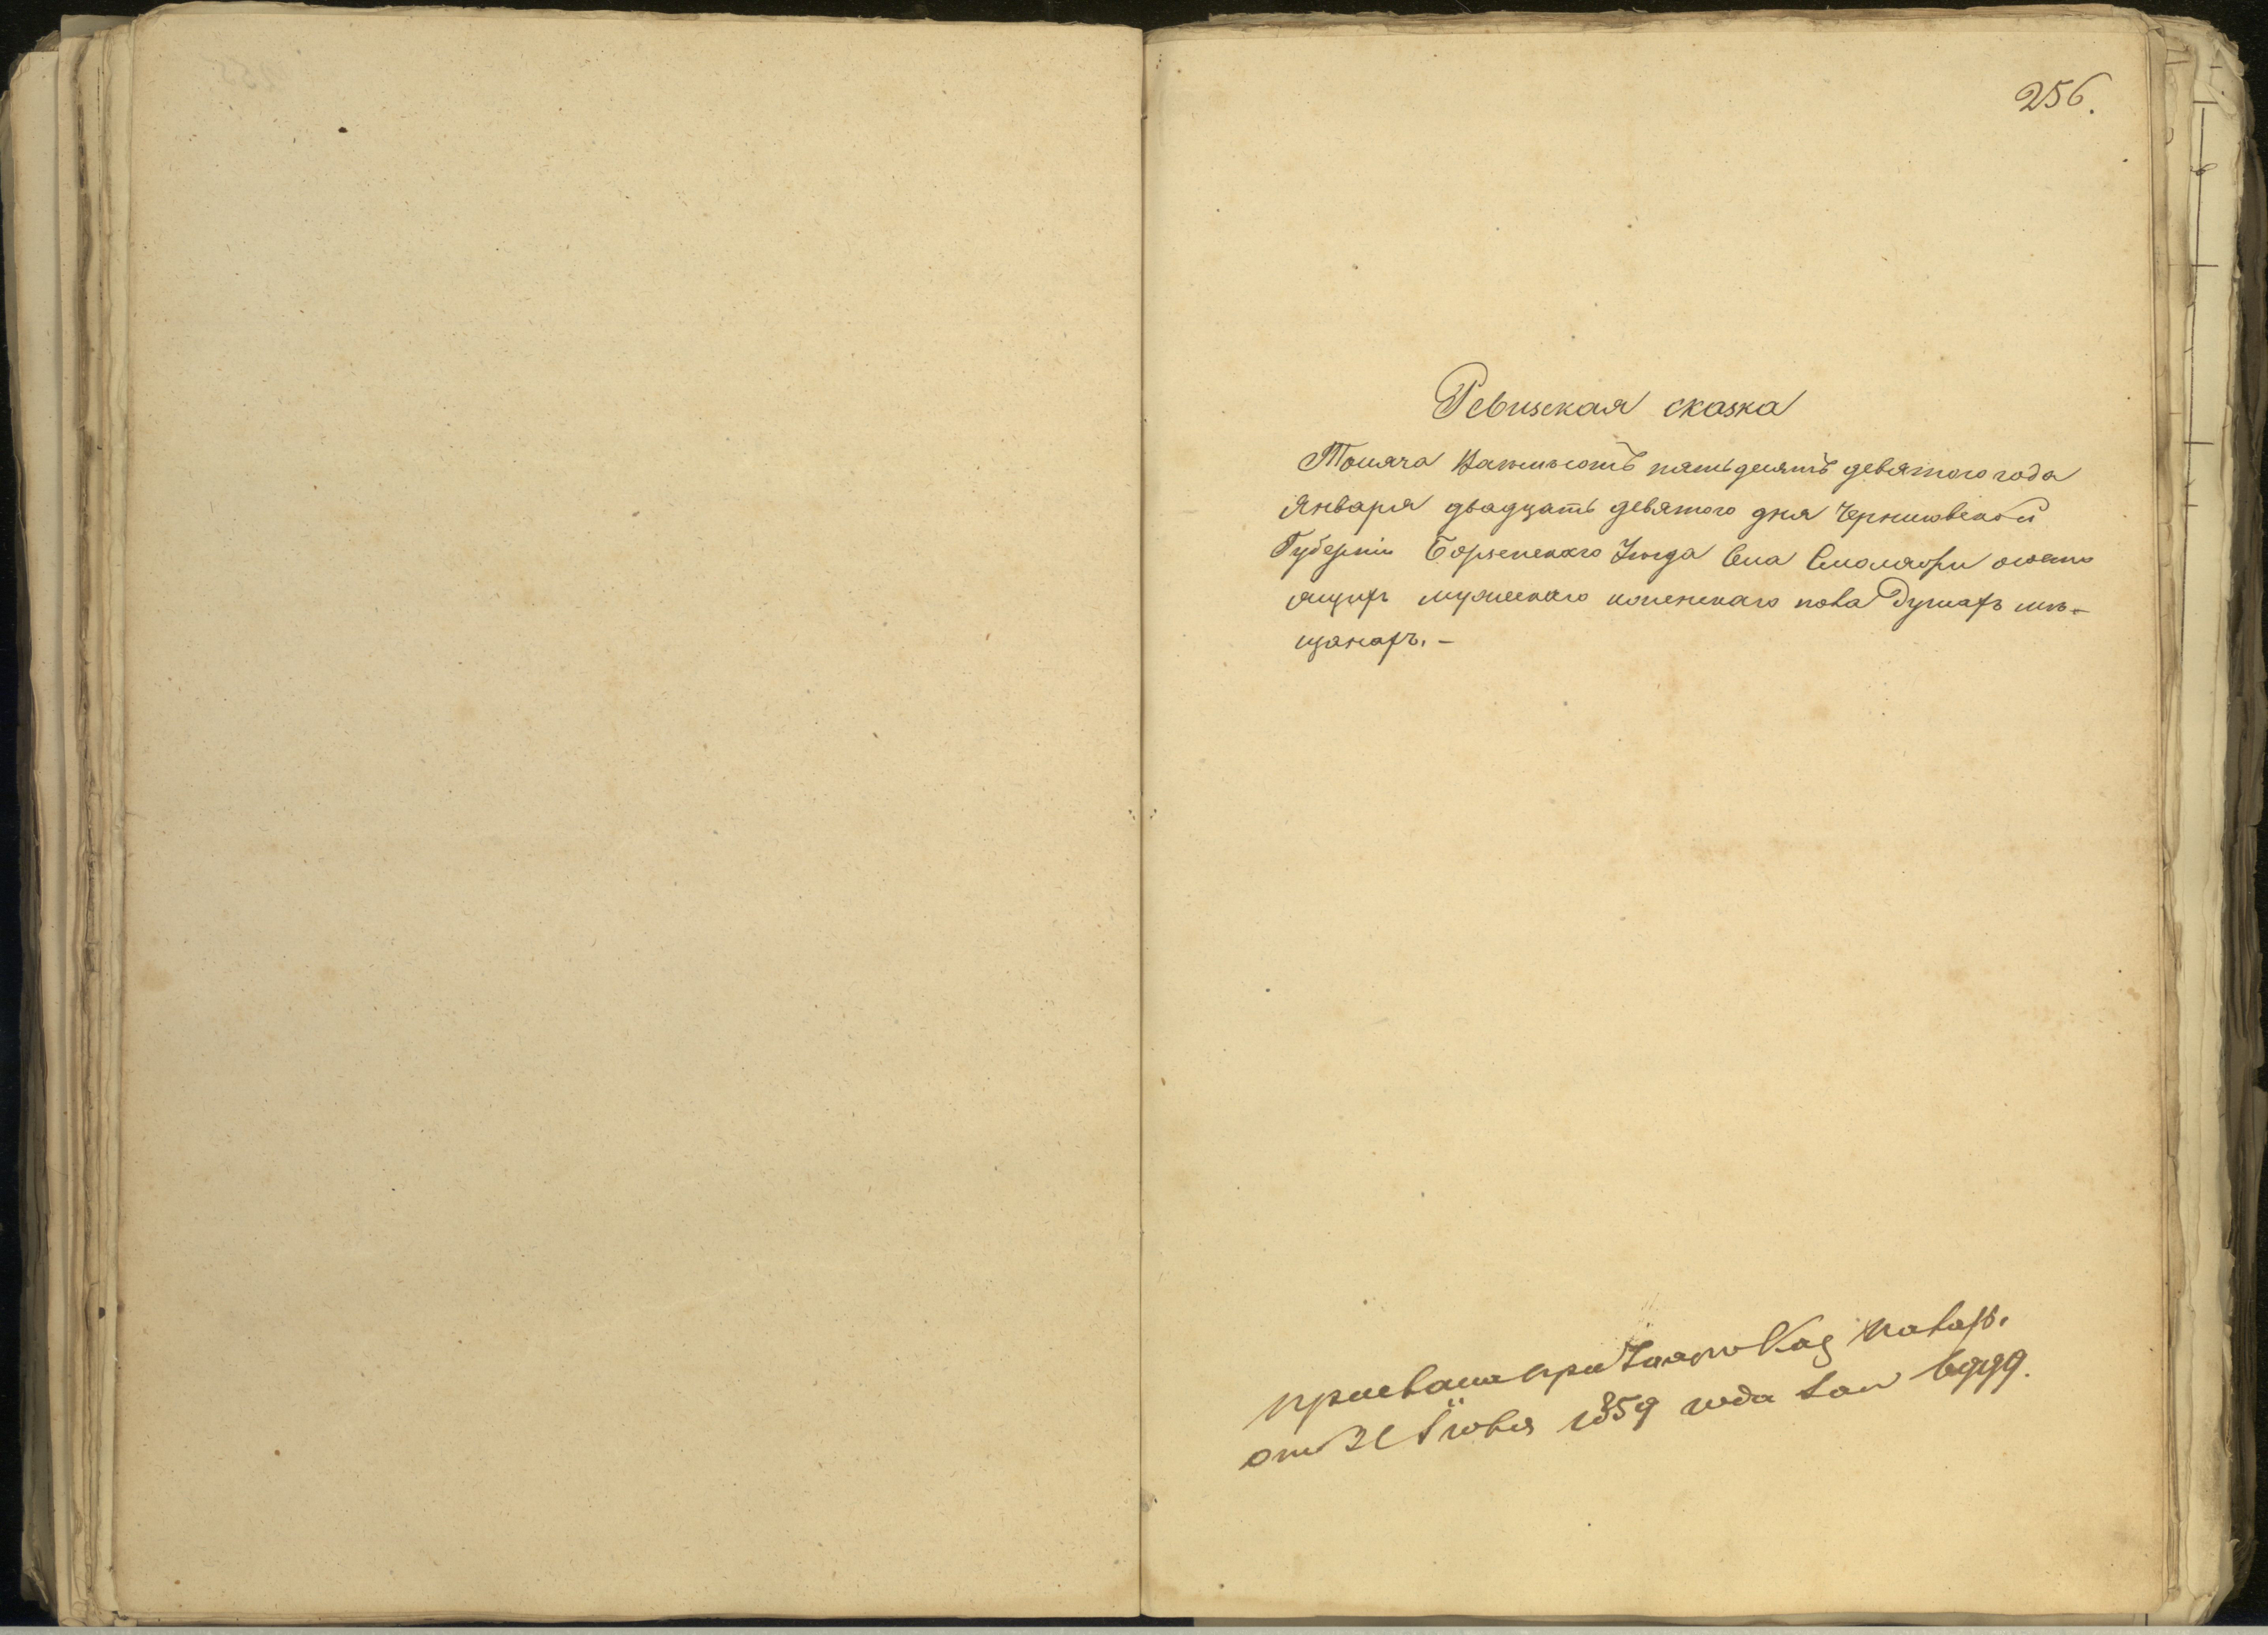 256.
Ревизская сказка
Тысяча восемьсотъ пятьдесятъ девятого года
Января двадцать девятого дня Черниговской
Губерніи Борзенскаго Уезда Села Смоляжи о состо
ящихъ мужескаго и женскаго пола Душахъ мѣ-
щанахъ. -
Каз Палаты
от Іюня 1859 года за